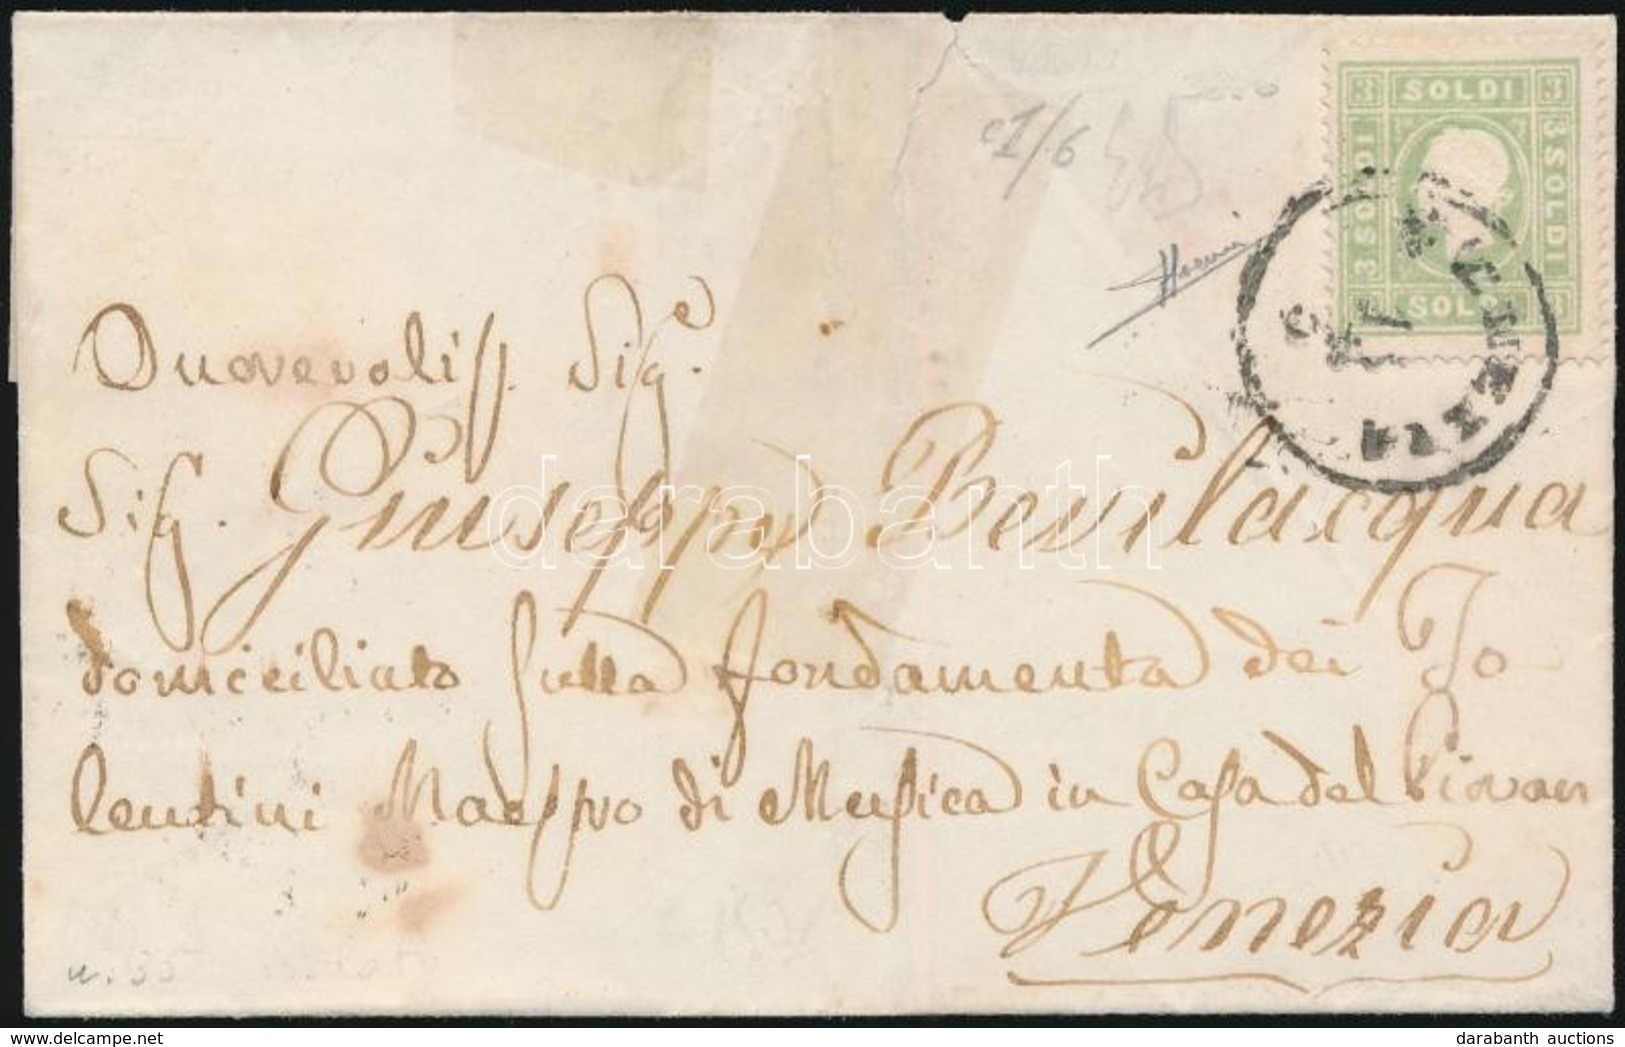 3 SOLDI 3
3 SOLDI
3 SOLDI
SOLDI
c1/6
VENEZIA
Onorevoliss. Sig.e
Sig. Giuseppe Bevilacqua
domiciliato sulla fondamenta dei To-
lendini Maestro di Musica in Casa del Piovan
Venezia
darabanth
darabanth auctions